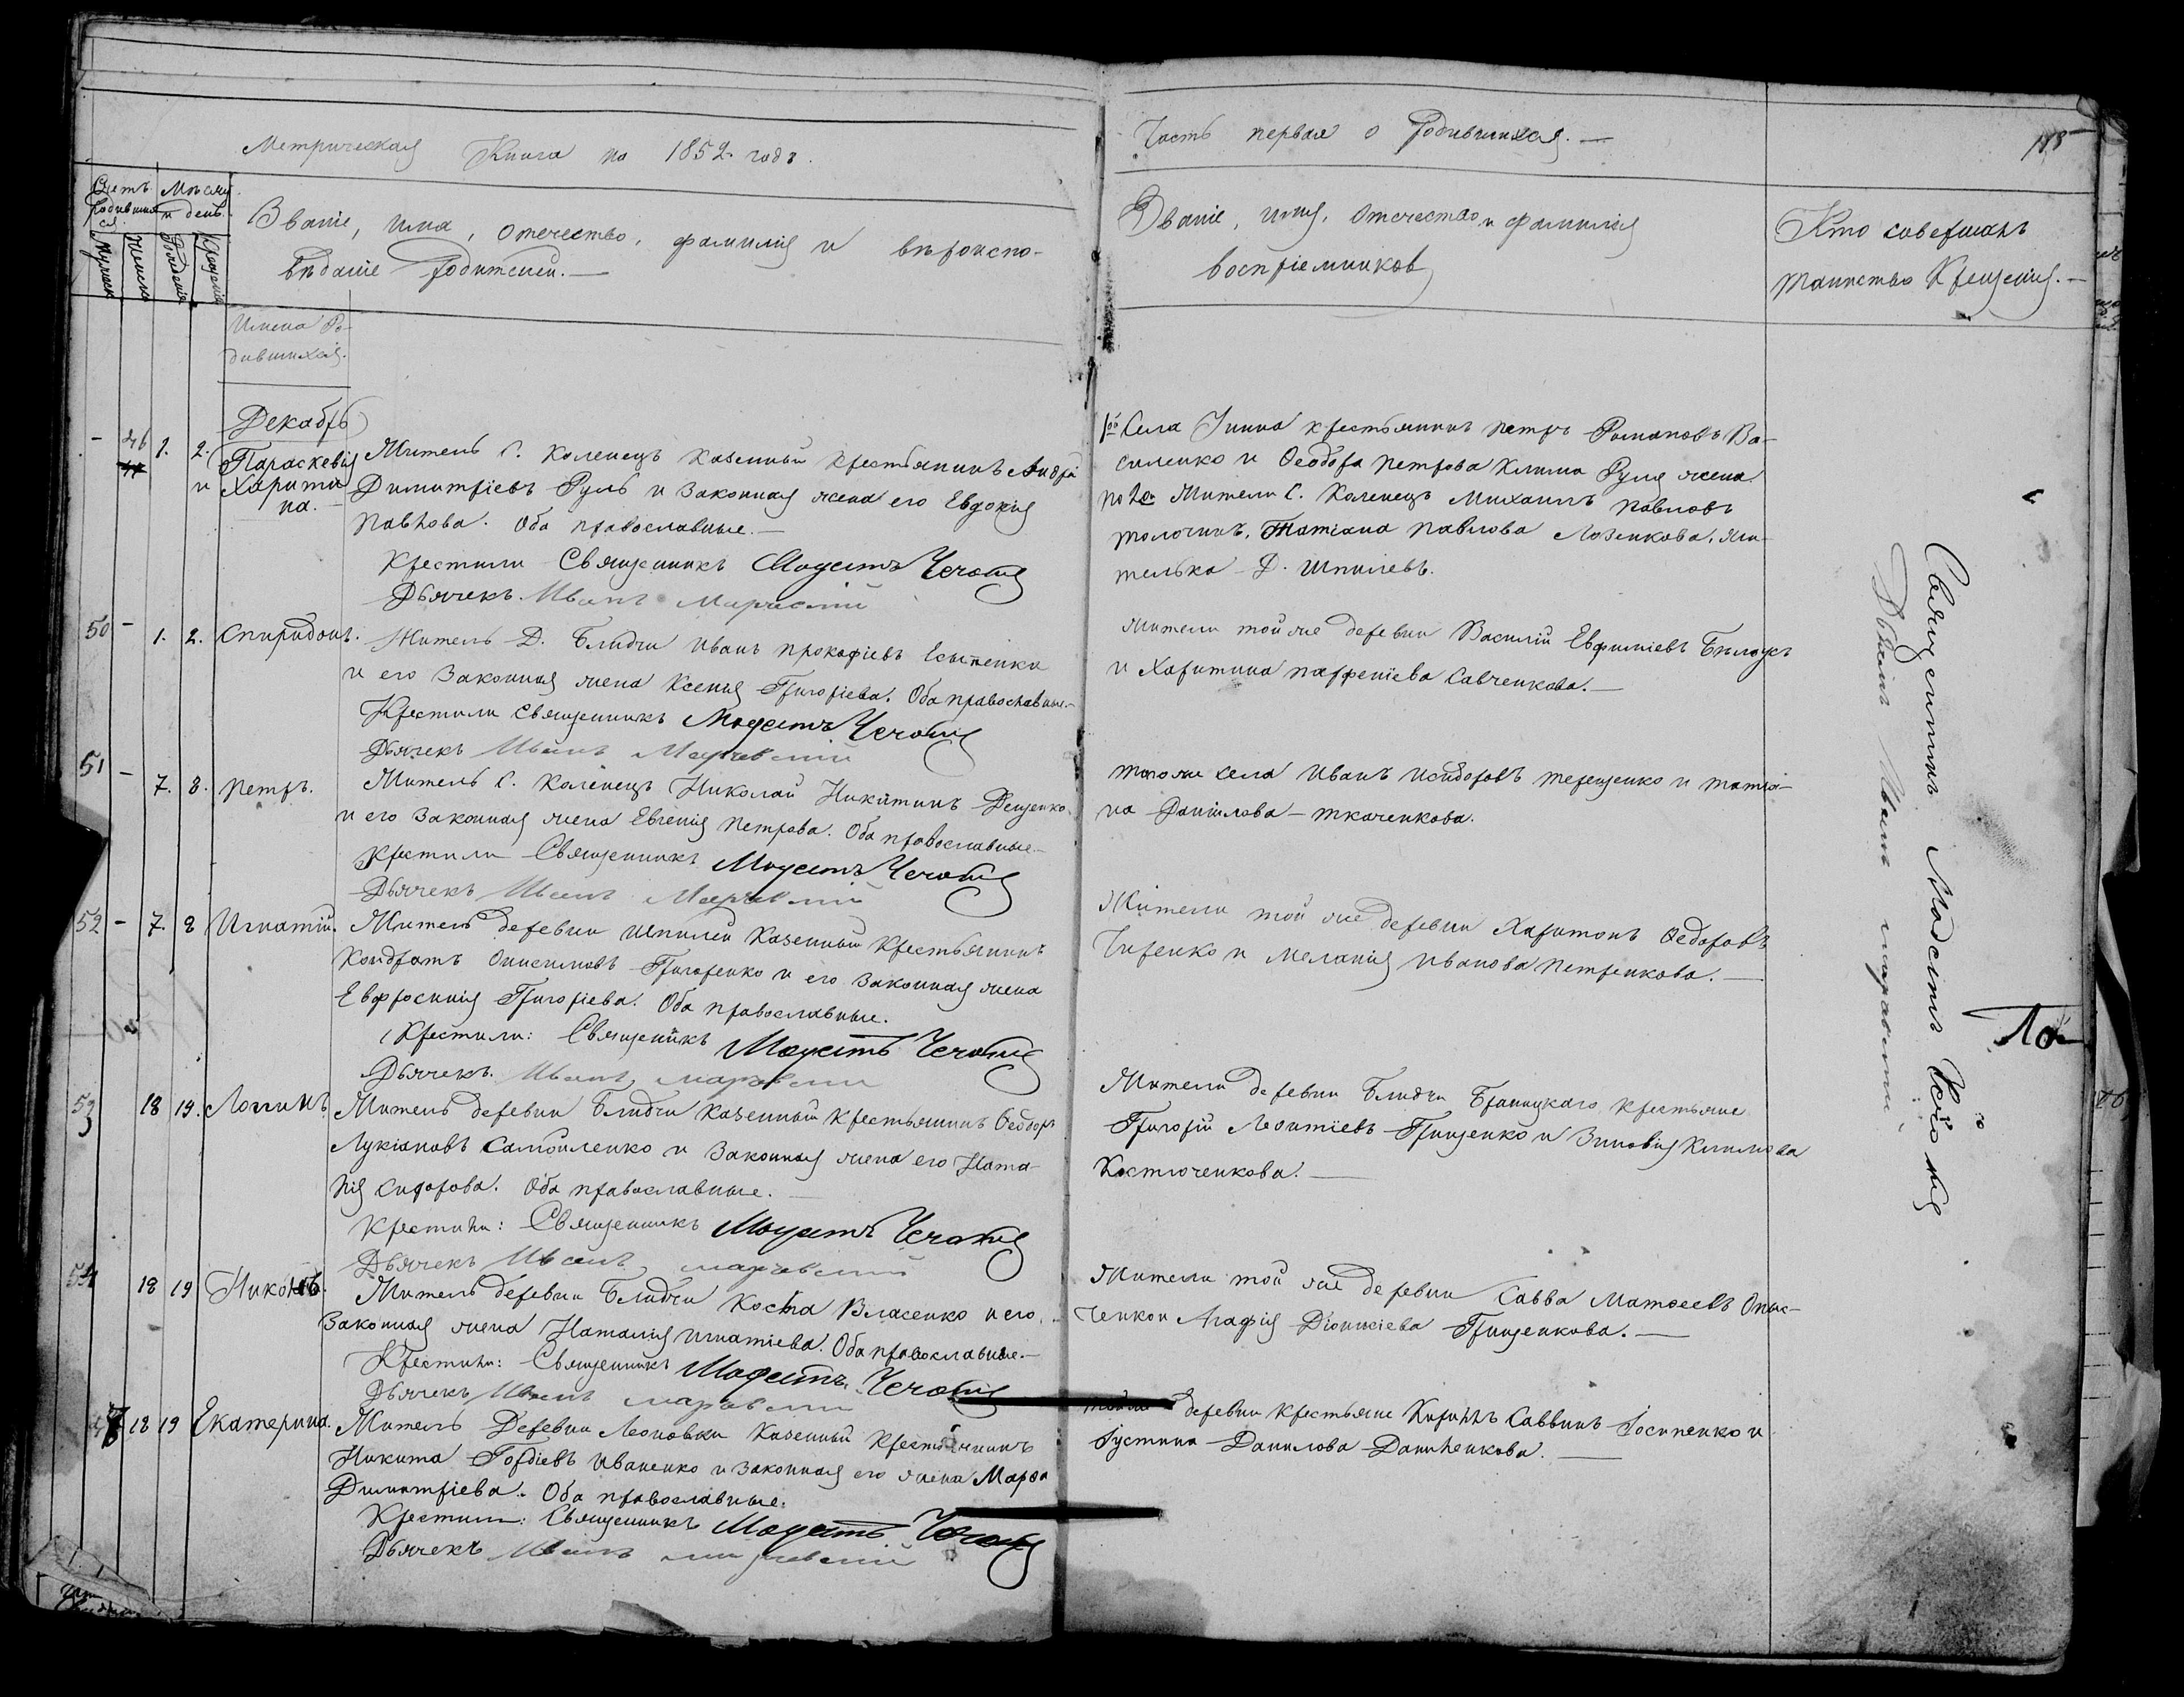 Метрическая Книга на 1852 годъ.
Счетъ родившихся.
Мѣсяцъ и день.
Мужеска
Женска
Рожденія
Крещенія
Званіе, имя, отечество, фамилія и вѣроиспо-
вѣданіе родителей.—
Имена Ро-
дившихся.
Декабрь
- 46 1. 2. Параскевія и Харити
на.
Житель С. Коленецъ казенный крестьянинъ Андрей
Димитріевъ Руль и законная жена его Евдокія
Павлова. Оба православные.—
Крестили Священникъ Модестъ
Дьячекъ Иванъ
50 - 1. 2. Спиридонъ. Житель Д. Блидчи Иванъ Прокофіевъ Есипенко
и его законная жена Ксенія Григоріева. Оба православные.—
Крестили Священникъ Модестъ
Дьячекъ Иванъ
51 - 7. 8. Петръ. Житель С. Коленецъ Николай Никитинъ Дещенко
и его законная жена Евгенія Петрова. Оба православные.—
Крестили Священникъ Модестъ
Дьячекъ Иванъ
52 - 7. 8 Игнатій. Житель деревни Шпилей казенный крестьянинъ
Кондратъ Онисимовъ Григоренко и его законная жена
Евфросинія Григоріева. Оба православные.
Крестили: Священикъ Модестъ
Дьячекъ. Иванъ
53 18 19. Логинъ. Житель деревни Блидчи казенный крестьянинъ Феодоръ
Лукіановъ Самойленко и законная жена его Ната-
лія Сидорова. Оба православные.
Крестили: Священникъ Модестъ
Дьячекъ Иванъ
54 18 19 Никонъ. Житель деревни Блидчи Косма Власенко и его
законная жена Наталія Игнатіева. Оба православные.—
Крестили: Священникъ Модестъ
Дьячекъ Иванъ
18 19 Екатерина. Житель Деревни Леоновки казенный крестьянинъ
Никита Гордіевъ Иваненко и законная его жена Марфа
Димитріева. Оба православные.
Крестили: Священникъ Модестъ
Дьячекъ Иванъ
Часть первая о Родившихся.—
Званіе, имя, отечество и фамилія
воспріемниковъ
Кто совершалъ
таинство Крещенія.—
Села крестьянинъ Петръ Романовъ Ва-
силенко и Феодора Петрова Клима Руля жена
по 2й Жители С. Коленецъ Михаилъ Павловъ
Толочинъ, Татіана Павлова Лозенкова, жи-
телька Д. Шпилевъ.
Жители той же деревни Василій Евфиміевъ Билоусъ
и Харитина Парфеніева Савченкова.—
Того же села Иванъ Исидоровъ Терещенко и Татіа-
на Даніилова Ткаченкова.
Жители той же деревни Харитонъ Федоровъ
Чиренко и Меланія Иванова Петренкова.—
Жители деревни Блидчи Браницкаго крестьяне
Григорій Леонтіевъ Грищенко и Зиновія Климова
Костюченкова.—
Жители той же деревни Савва Матфеевъ Онис-
ченко и Агафія Діонисіева Грищенкова.—
деревни крестьяне Кириллъ Саввинъ Іосипенко и
Іустина Данилова Даниленкова.—
Священникъ Модестъ
Дьячекъ Иванъ
По